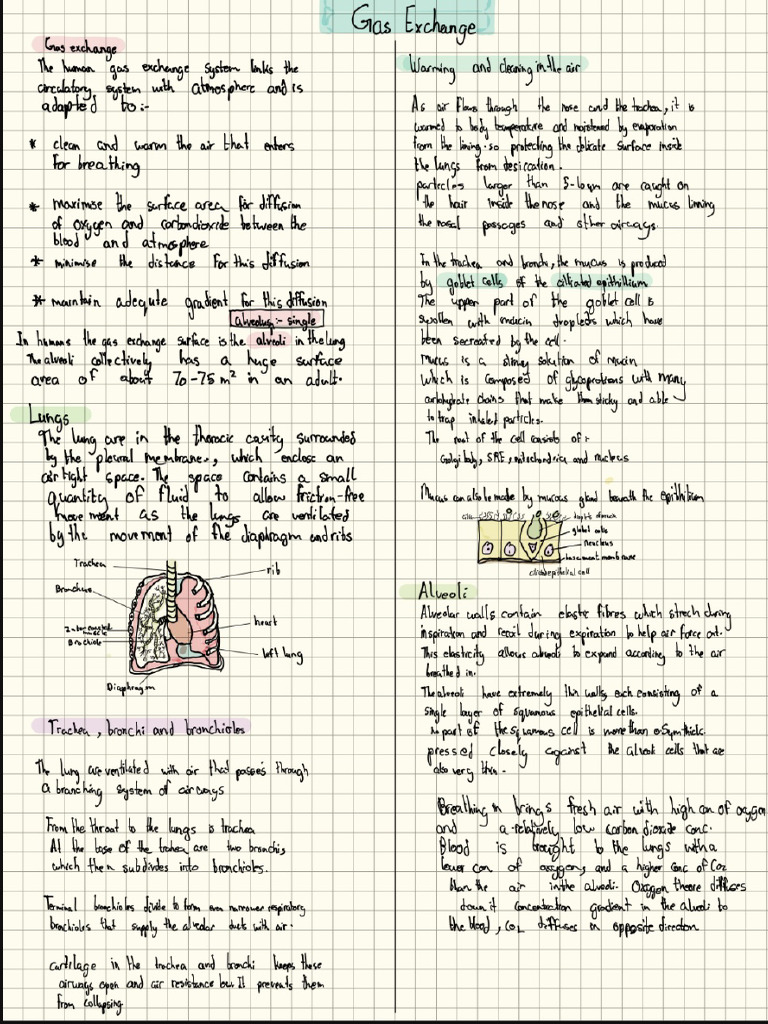 Gas Exchange
Gas exchange
The human gas exchange system links the
circulatory system with atmosphere and is
adapted to:-
* clean and warm the air that enters
for breathing
* maximise the surface area for diffusion
of oxygen and carbondioxide between the
blood and atmosphere
* minimise the distance for this diffusion
* maintain adequte gradient for this diffusion
alveolus:- single
In humans the gas exchange surface is the alveoli in the lung
The alveoli collectively has a huge surface
area of about 70-75 m² in an adult.
Lungs
The lung are in the thoracic cavity surrounded
by the pleural membrane, which enclose an
air tight space. The space contains a small
quantity of fluid to allow friction-free
movement as the lungs are ventilated
by the movement of the diaphragm and ribs
Trachea
rib
Bronchus
heart
Bronchiole
left lung
Diaphragm
Trachea, bronchi and bronchioles
The lung are ventilated with air that passes through
a branching system of airways
From the throat to the lungs is trachea
At the base of the trachea are two bronchi,
which then subdivides into bronchioles.
Terminal bronchioles divide to form even narrower respiratory
bronchioles that supply the alveolar ducts with air.
cartilage in the trachea and bronchi keeps these
airways open and air resistance low. It prevents them
from collapsing
Warming and cleaning in the air
As air flows through the nose and the trachea, it is
warmed to body temperature and moistened by evaporation
from the lining. so protecting the delicate surface inside
the lungs from desiccation.
particles larger than 5-10µm are caught on
the hair inside the nose and the mucus linning
the nasal passages and other airways.
In the trachea and bronchi, the mucus is produced
by goblet cells of the ciliated epithillium
The upper part of the goblet cell is
swollen with mucin droplets which have
been secreated by the cell.
Mucus is a slimy solution of mucin
which is composed of glycoprotions with many
carbohydrate chains that make them sticky and able
to trap inhaled particles.
The rest of the cell consists of:
Golgi body, SRE, mitochondria and nucleus
Mucus can also be made by mucous gland beneath the epithilium
cilia
goblet cells
basement membrane
ciliated epithelial cell
Alveoli
Alveolar walls contain elastic fibres which strech during
inspiration and recoil during expiration to help air force out.
This elasticity allows alveoli to expand according to the air
breathed in.
The alveoli have extremely thin walls, each consisting of a
single layer of squamous epithelial cells.
No part of the squamous cell is more than 0.5µm thick.
pressed closely against the alveoli cells that are
also very thin.
Breathing in brings fresh air with high con of oxygen
and a relatively low carbon dioxide conc.
Blood is brought to the lungs with a
lower con of oxygen, and a higher conc of Co2
than the air in the alveoli. Oxygen diffuses
down it concentration gradient in the alveoli to
the blood, CO2 diffuses in opposite direction